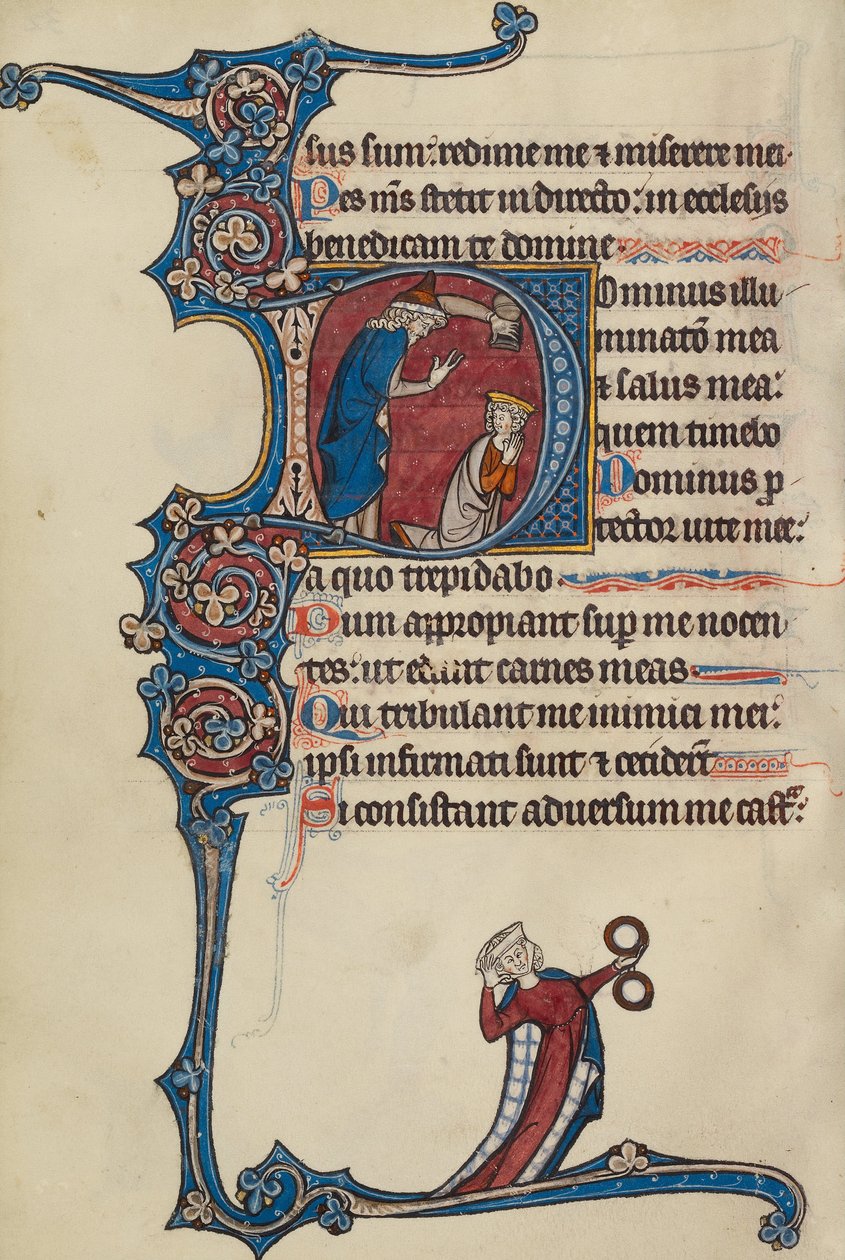 sus sum: redime me ⁊ miserere mei.
Pes m̄s stetit in directo: in ecclesijs
benedicam te domine
Dominus illu
minatō mea
⁊ salus mea:
quem timebo
Dominus ꝓ
tector uite mee:
a quo trepidabo.
Dum appropiant suꝑ me nocen
tes: ut edant carnes meas
Qui tribulant me inimici mei:
ipsi infirmati sunt ⁊ ceciderūt
Si consistant aduersum me castra: